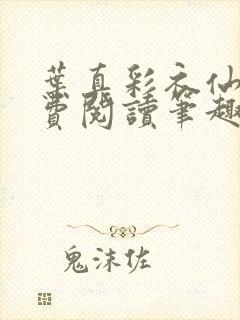 葉真彩衣仙
費閱讀筆趣
鬼沫佐